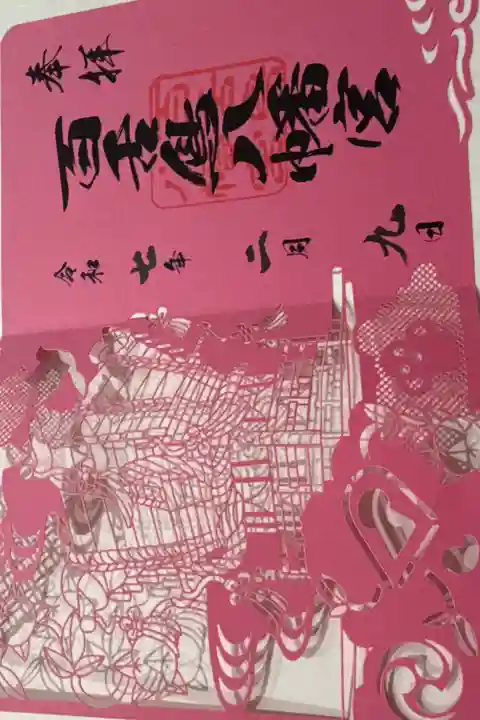 奉拝
百舌鳥八幡宮
令和七年二月九日